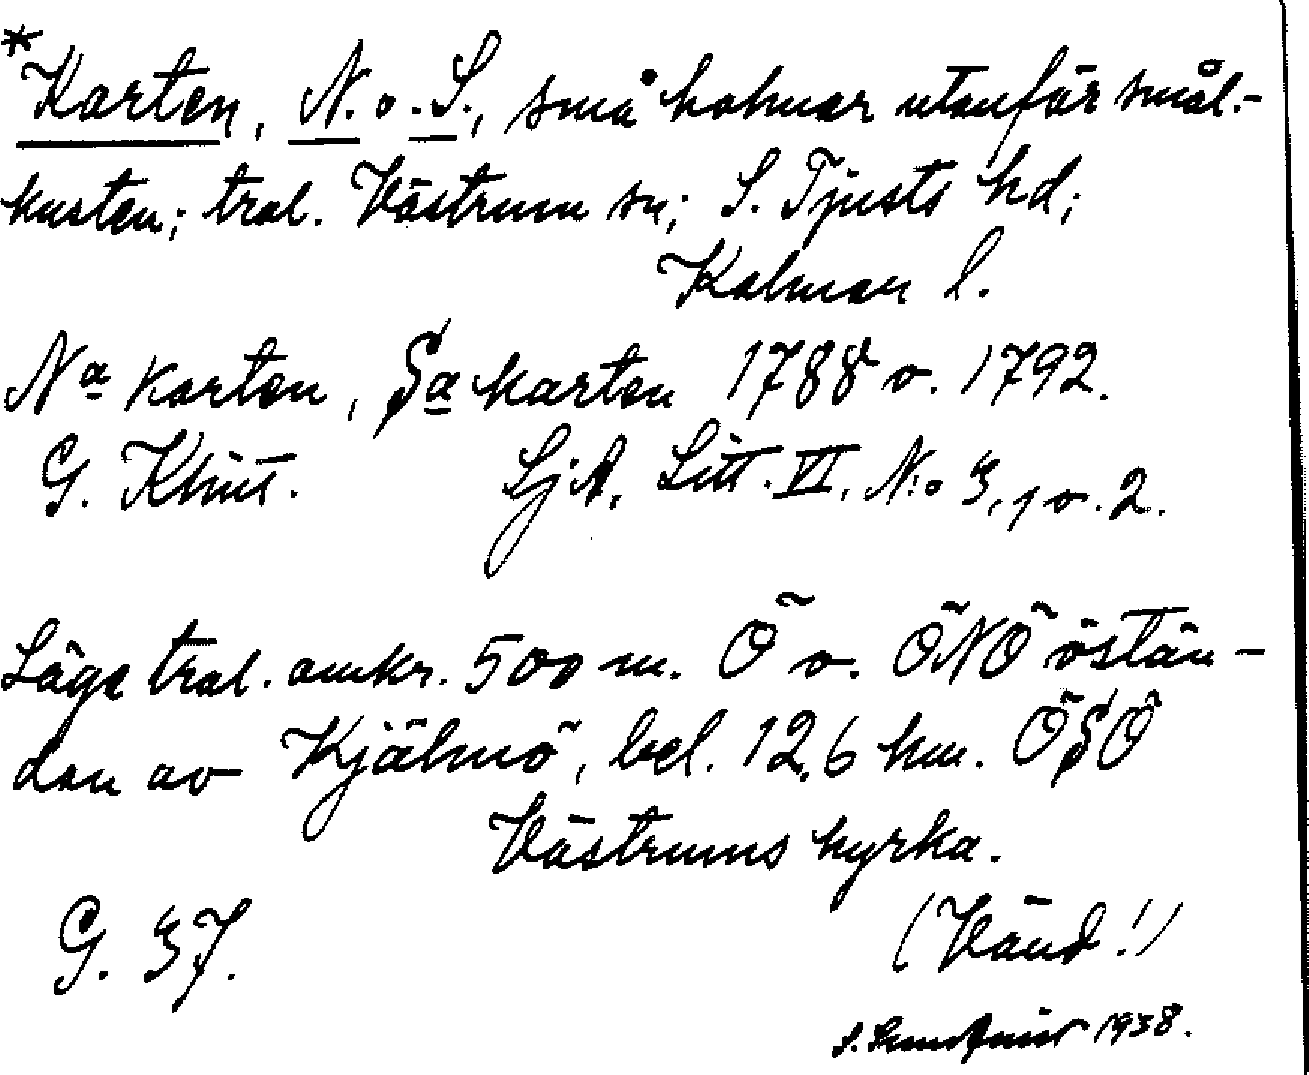 *Karten, N. o. S., små holmar utanför smål.-
kusten; trol. Västrum sn; S. Tjusts hd;
Kalmar l.
Na Karten, Sa Karten 1788 o. 1792.
G. Klint. SjA, Litt. VI, N:o 3, 1 o. 2.
Läge trol. omkr. 500 m. Ö o. ÖNÖ östän-
dan av Kjälmö, bel. 12,6 km. ÖSÖ
Västrums kyrka.
G. 37. (Vänd!)
S. 1938.